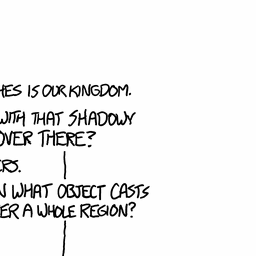 IS OUR KINGDOM.
WITH THAT SHADOWY
OVER THERE?
N WHAT OBJECT CASTS
ER A WHOLE REGION?